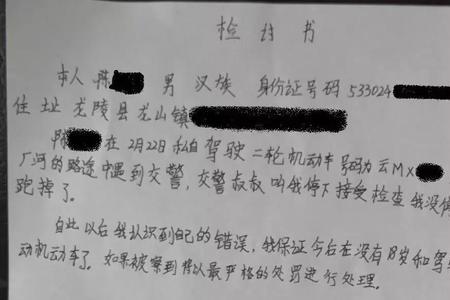 检讨书
本人陈 男 汉族 身份证号码533024
住址龙陵县龙山镇
陈 在2月22日私自驾驶二轮机动车号码为云MX
厂河的路途中遇到交警,交警叔叔叫我停下接受检查我没停
跑掉了。
自此以后我认识到自己的错误,我保证今后在没有18岁和驾
动机动车了。如果被察到将以最严格的处罚进行处理。